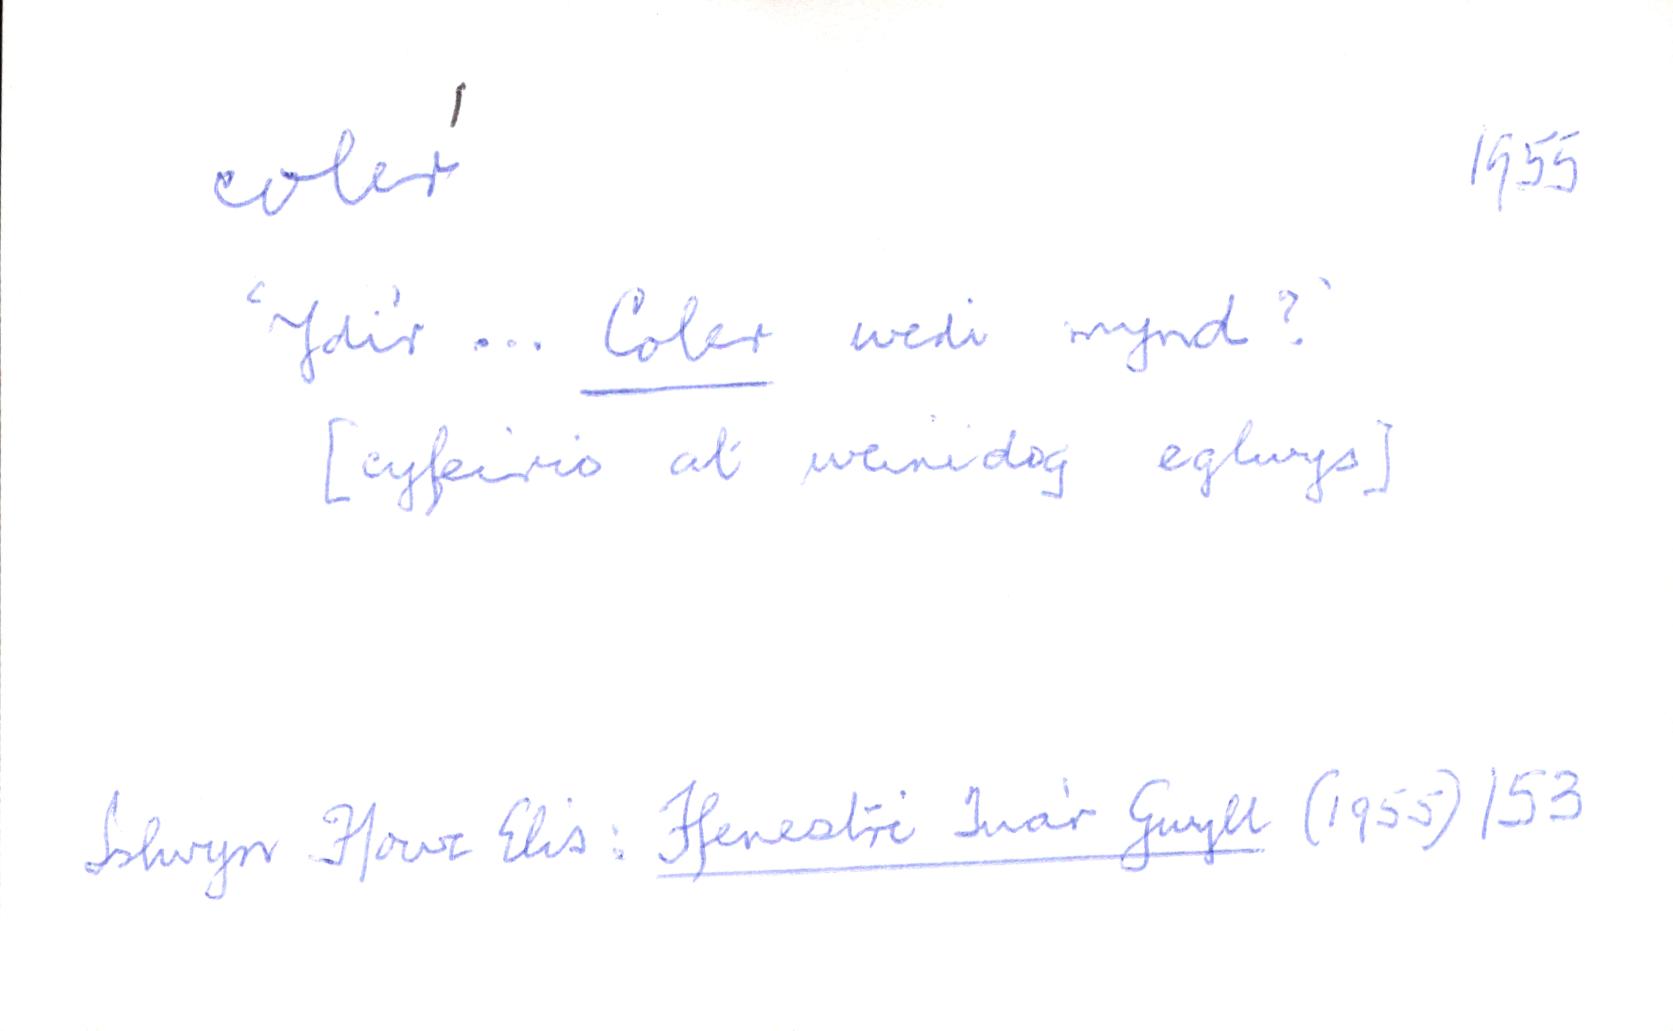 coler¹ 1955
'Ydi'r ... Coler wedi mynd?'
[cyfeirio at weinidog eglwys]
Islwyn Ffowc Elis: Ffenestri Tua'r Gwyll (1955) 153